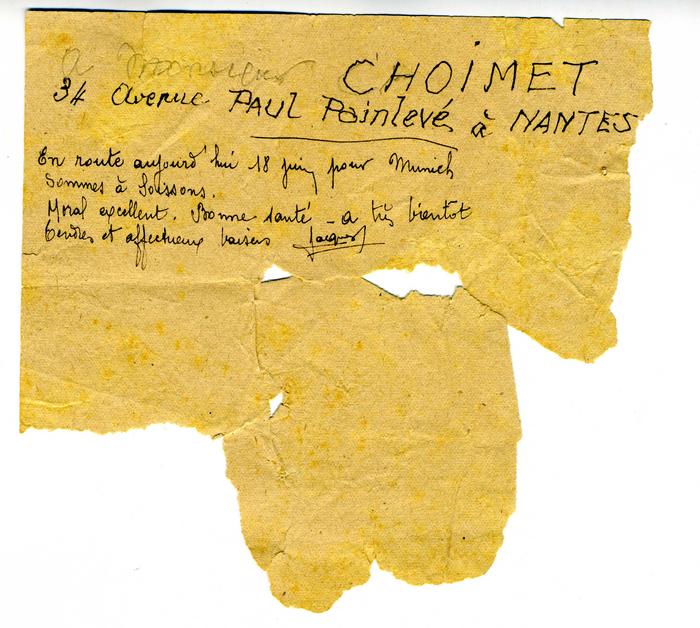 A Monsieur CHOIMET
34 Avenue PAUL Painlevé à NANTES
En route aujourd'hui 18 juin pour Munich
Sommes à Soissons.
Moral excellent. Bonne santé - a très bientot
Tendres et affectueux baisers Jacques